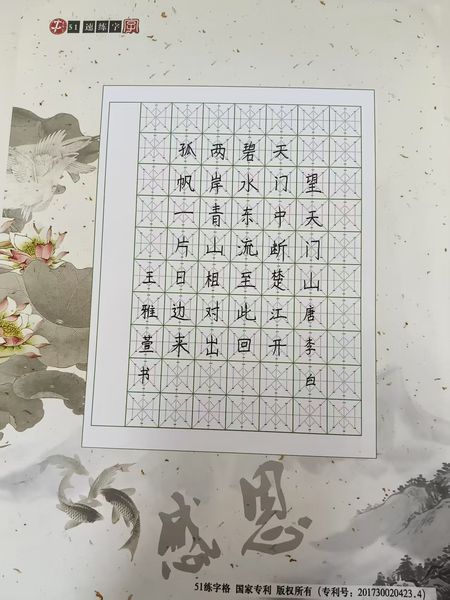 51速练字
望天门山 唐 李白
天门中断楚江开
碧水东流至此回
两岸青山相对出
孤帆一片日边来
王雅萱书
感恩
51练字格 国家专利 版权所有（专利号：201730020423.4）